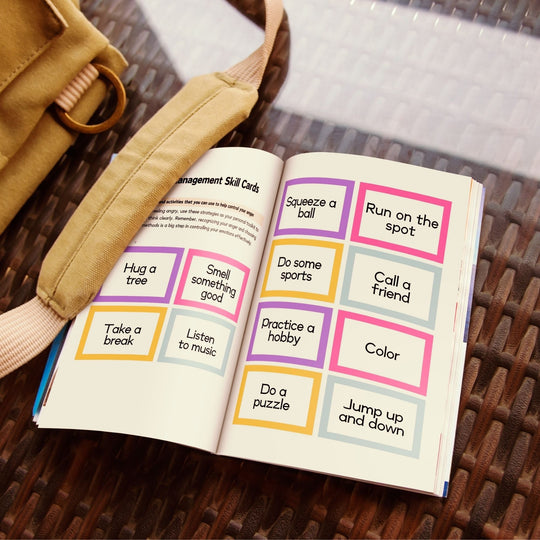 anagement Skill Cards
and activities that you can use to help control your anger
feeling angry, use these strategies as your personal toolkit to
think clearly. Remember, recognizing your anger and choosing
methods is a big step in controlling your emotions effectively.
Hug a
tree
Smell
something
good
Take a
break
Listen
to music
Squeeze a
ball
Run on the
spot
Do some
sports
Call a
friend
Practice a
hobby
Color
Do a
puzzle
Jump up
and down